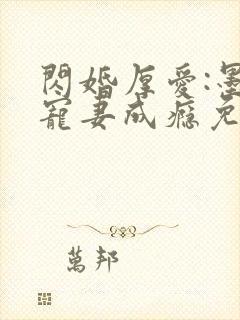 閃婚厚愛:墨
寵妻成癮免
萬邦